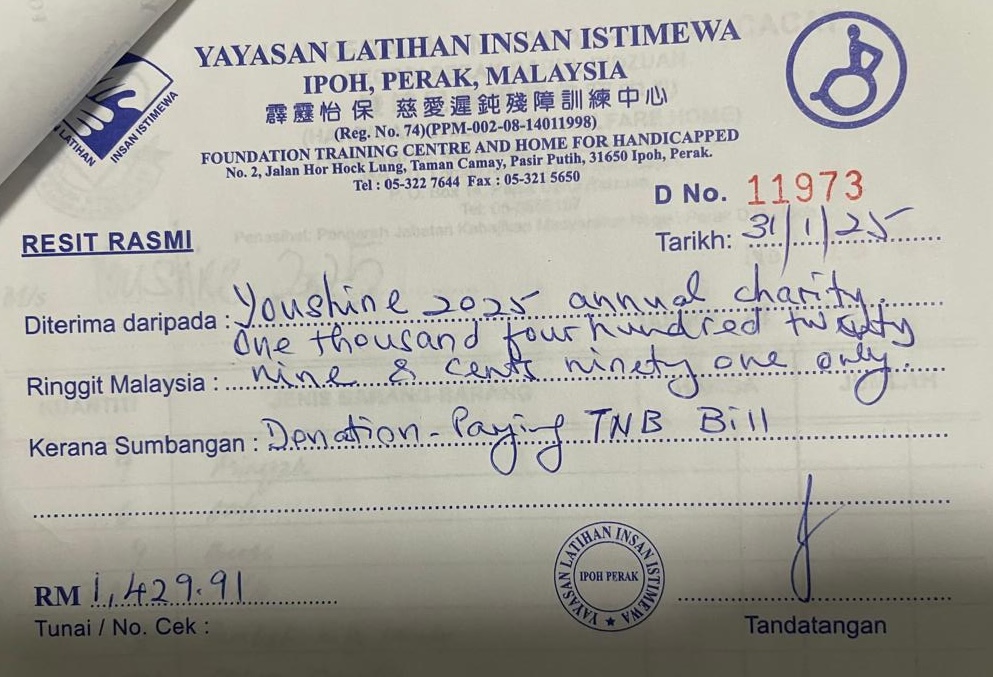 YAYASAN LATIHAN INSAN ISTIMEWA
IPOH, PERAK, MALAYSIA
霹靂怡保 慈愛遲鈍殘障訓練中心
(Reg. No. 74)(PPM-002-08-14011998)
FOUNDATION TRAINING CENTRE AND HOME FOR HANDICAPPED
No. 2, Jalan Hor Hock Lung, Taman Camay, Pasir Putih, 31650 Ipoh, Perak.
Tel : 05-322 7644 Fax : 05-321 5650
LATIHAN INSAN ISTIMEWA
D No. 11973
RESIT RASMI
Tarikh: 31/1/25
Diterima daripada : Youshine 2025 annual charity.
One thousand four hundred twenty
Ringgit Malaysia : nine & cents ninety one only.
Kerana Sumbangan : Donation - Paying TNB Bill
RM 1,429.91
Tunai / No. Cek :
YAYASAN LATIHAN INSAN ISTIMEWA
IPOH PERAK
Tandatangan